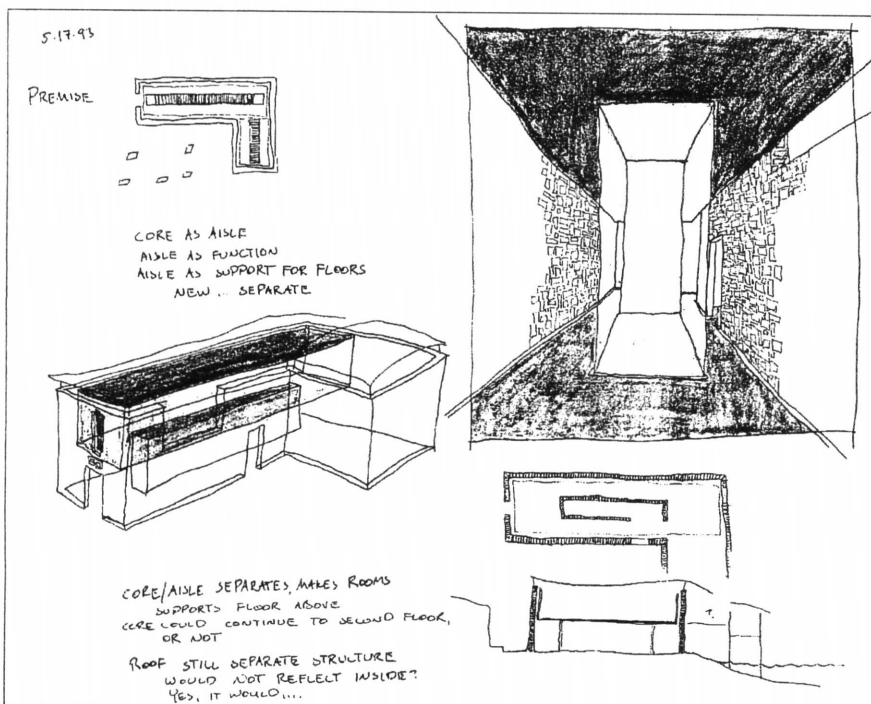 5.17.93
PREMISE
CORE AS AISLE
AISLE AS FUNCTION
AISLE AS SUPPORT FOR FLOORS
NEW ... SEPARATE
CORE/AISLE SEPARATES, MAKES ROOMS
SUPPORTS FLOOR ABOVE
CORE COULD CONTINUE TO SECOND FLOOR,
OR NOT
ROOF STILL SEPARATE STRUCTURE
WOULD NOT REFLECT INSIDE?
YES, IT WOULD....
?